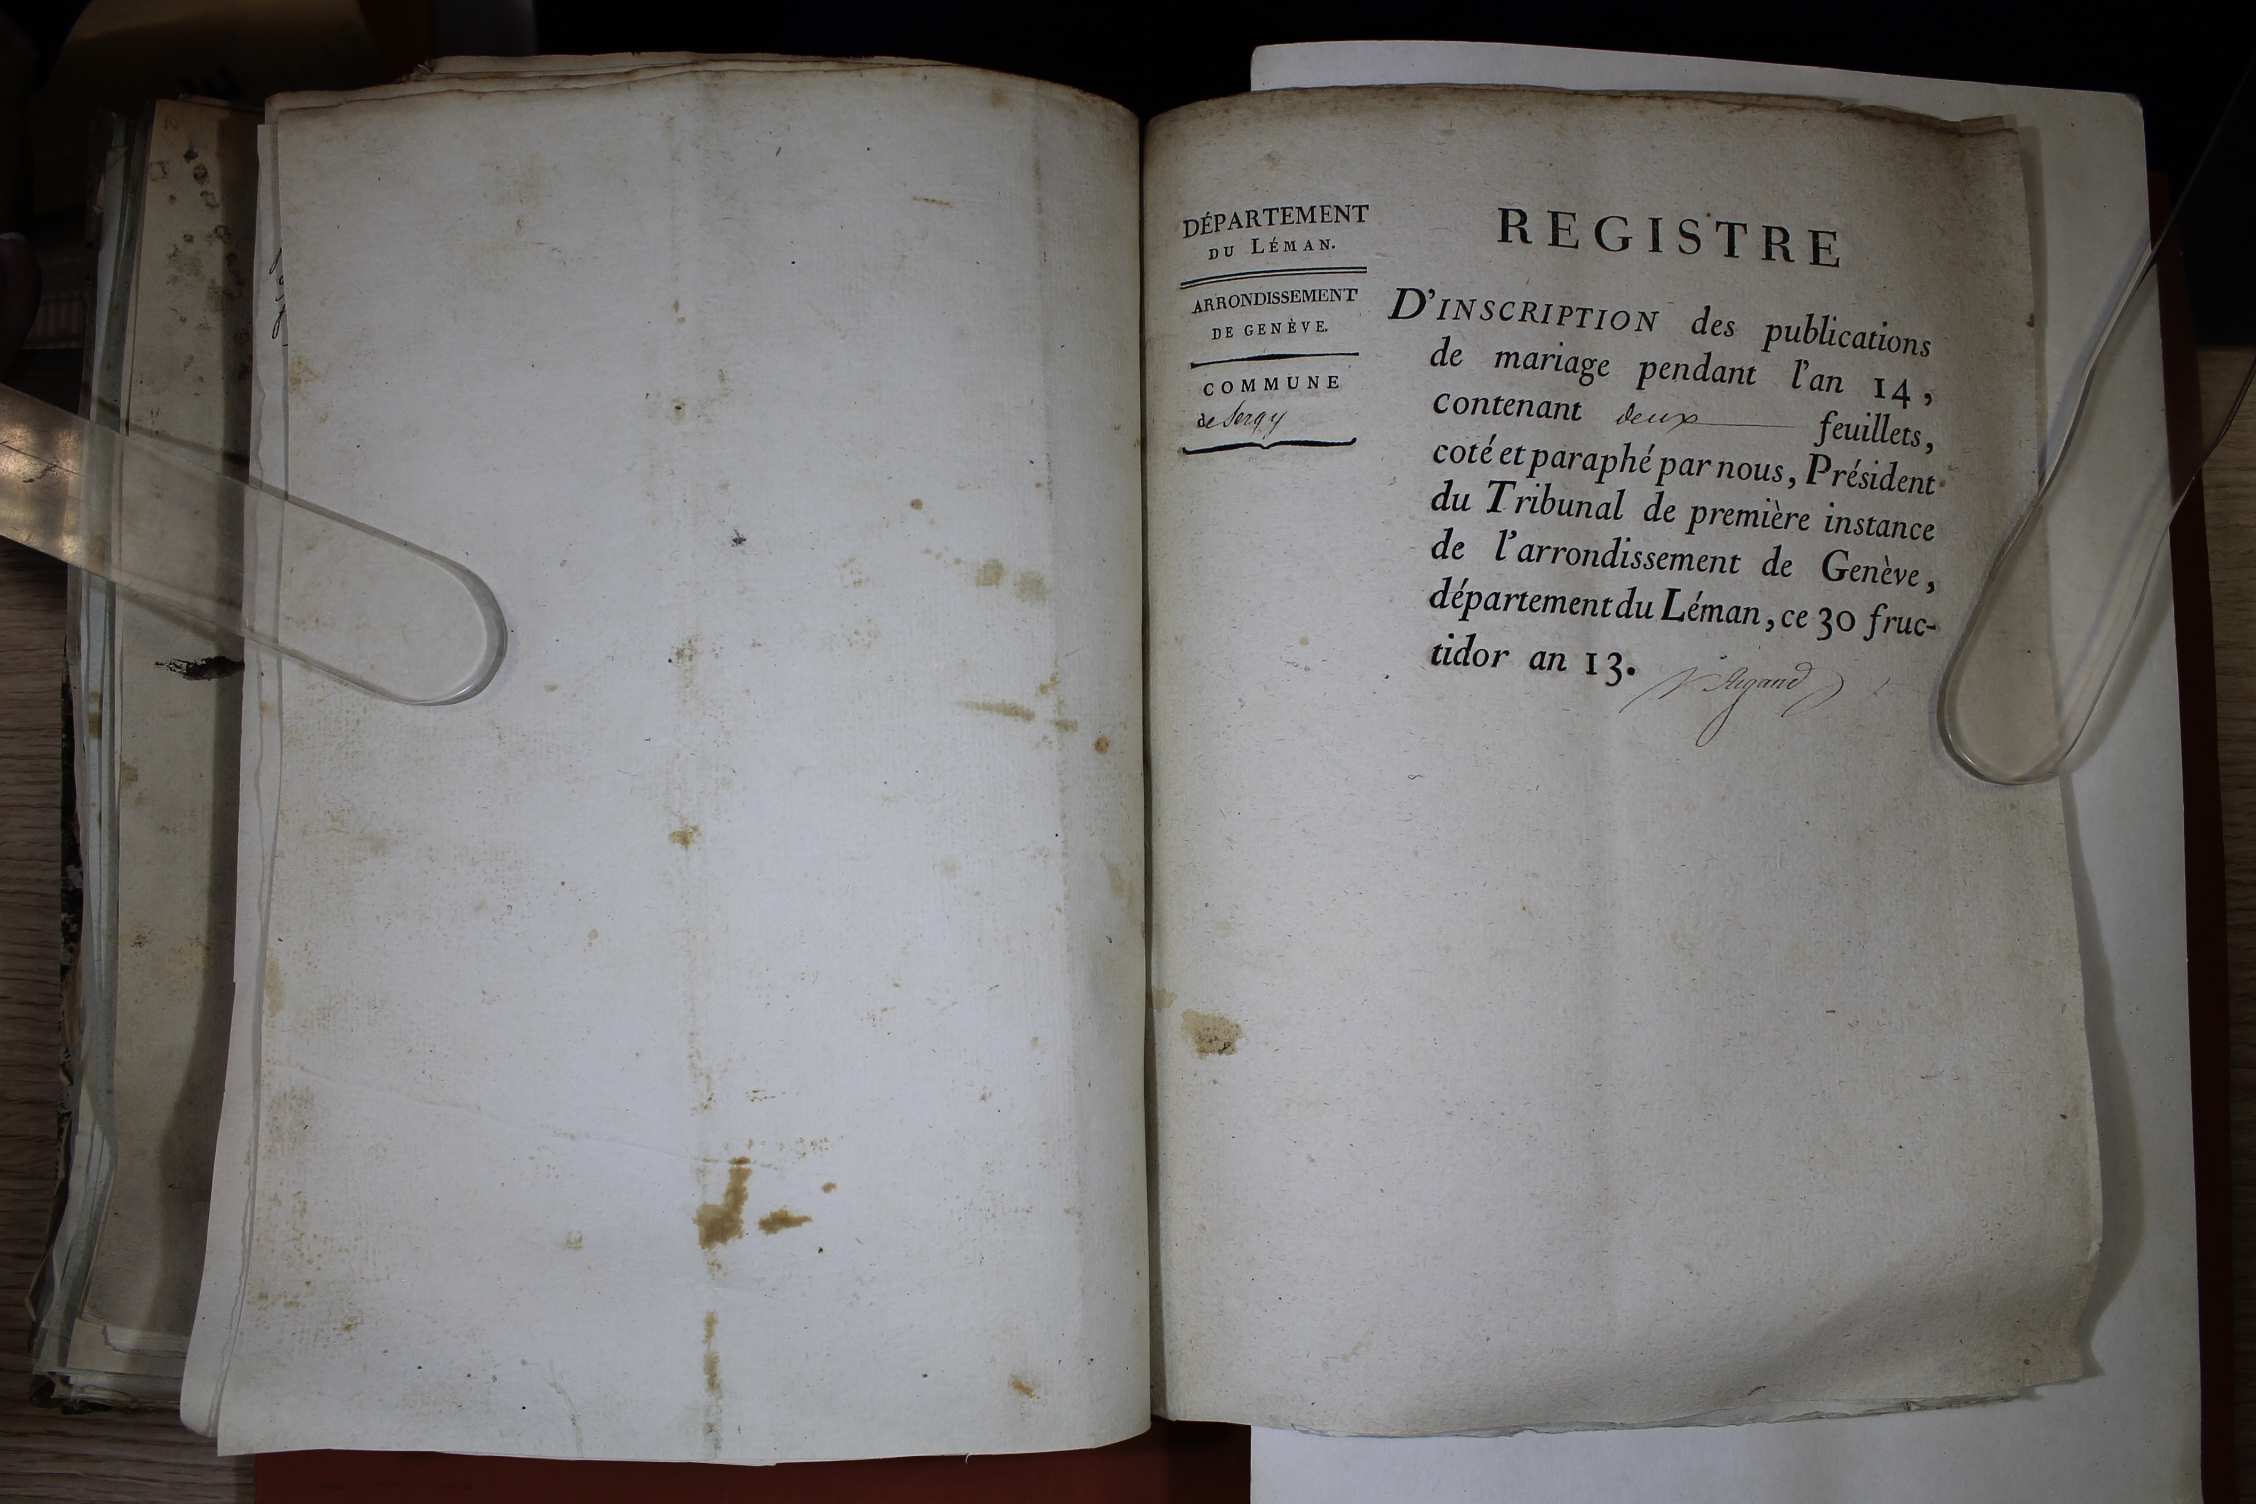 DÉPARTEMENT
DU LÉMAN.
ARRONDISSEMENT
DE GENÈVE.
COMMUNE
de Sergy
REGISTRE
D'INSCRIPTION des publications
de mariage pendant l'an 14,
contenant deux feuillets,
coté et paraphé par nous, Président
du Tribunal de première instance
de l'arrondissement de Genève,
département du Léman, ce 30 fruc-
tidor an 13.